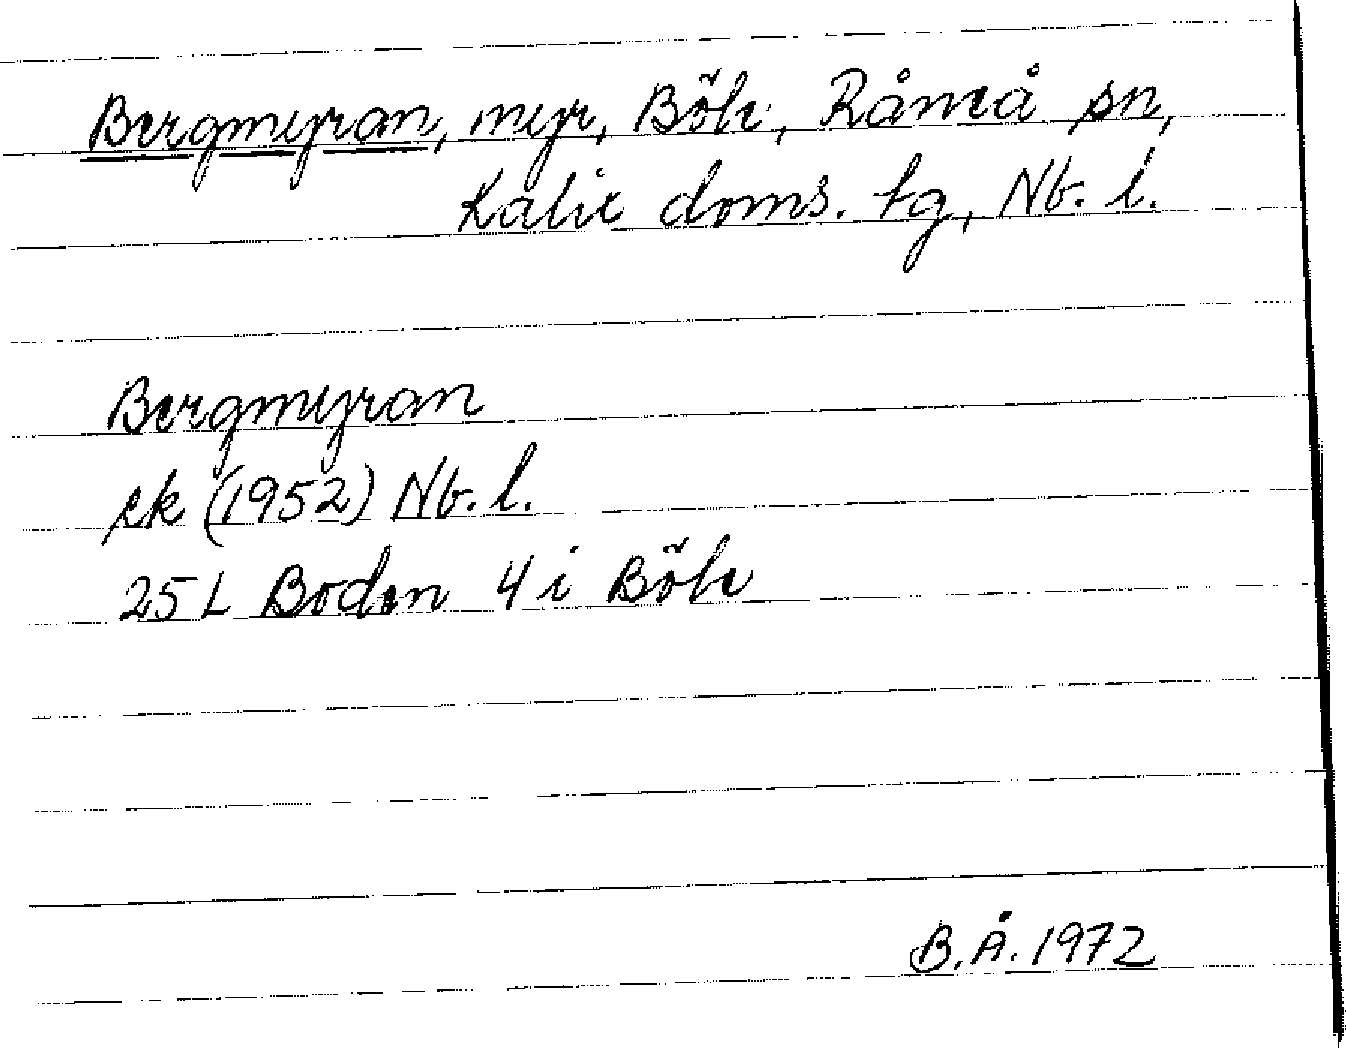 Bergmyran, myr, Böle, Råneå sn,
Kalix doms. tg, Nb. l.
Bergmyran
ek (1952) Nb. l.
25 L Boden 4 i Böle
B.Å. 1972